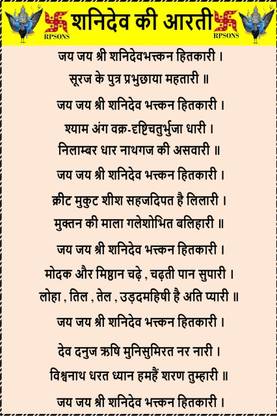 शनिदेव की आरती
RPSONS
RPSONS
जय जय श्री शनिदेवभत्कन हितकारी ।
सूरज के पुत्र प्रभुछाया महतारी ॥
जय जय श्री शनिदेव भत्कन हितकारी ।
श्याम अंग वक्र-दृष्टिचतुर्भुजा धारी ।
निलाम्बर धार नाथगज की असवारी ॥
जय जय श्री शनिदेव भत्कन हितकारी ।
क्रीट मुकुट शीश सहजदिपत है लिलारी ।
मुक्तन की माला गलेशोभित बलिहारी ॥
जय जय श्री शनिदेव भत्कन हितकारी ।
मोदक और मिष्ठान चढ़े , चढ़ती पान सुपारी ।
लोहा , तिल , तेल , उड़दमहिषी है अति प्यारी ॥
जय जय श्री शनिदेव भत्कन हितकारी ।
देव दनुज ऋषि मुनिसुमिरत नर नारी ।
विश्वनाथ धरत ध्यान हमहैं शरण तुम्हारी ॥
जय जय श्री शनिदेव भत्कन हितकारी ।